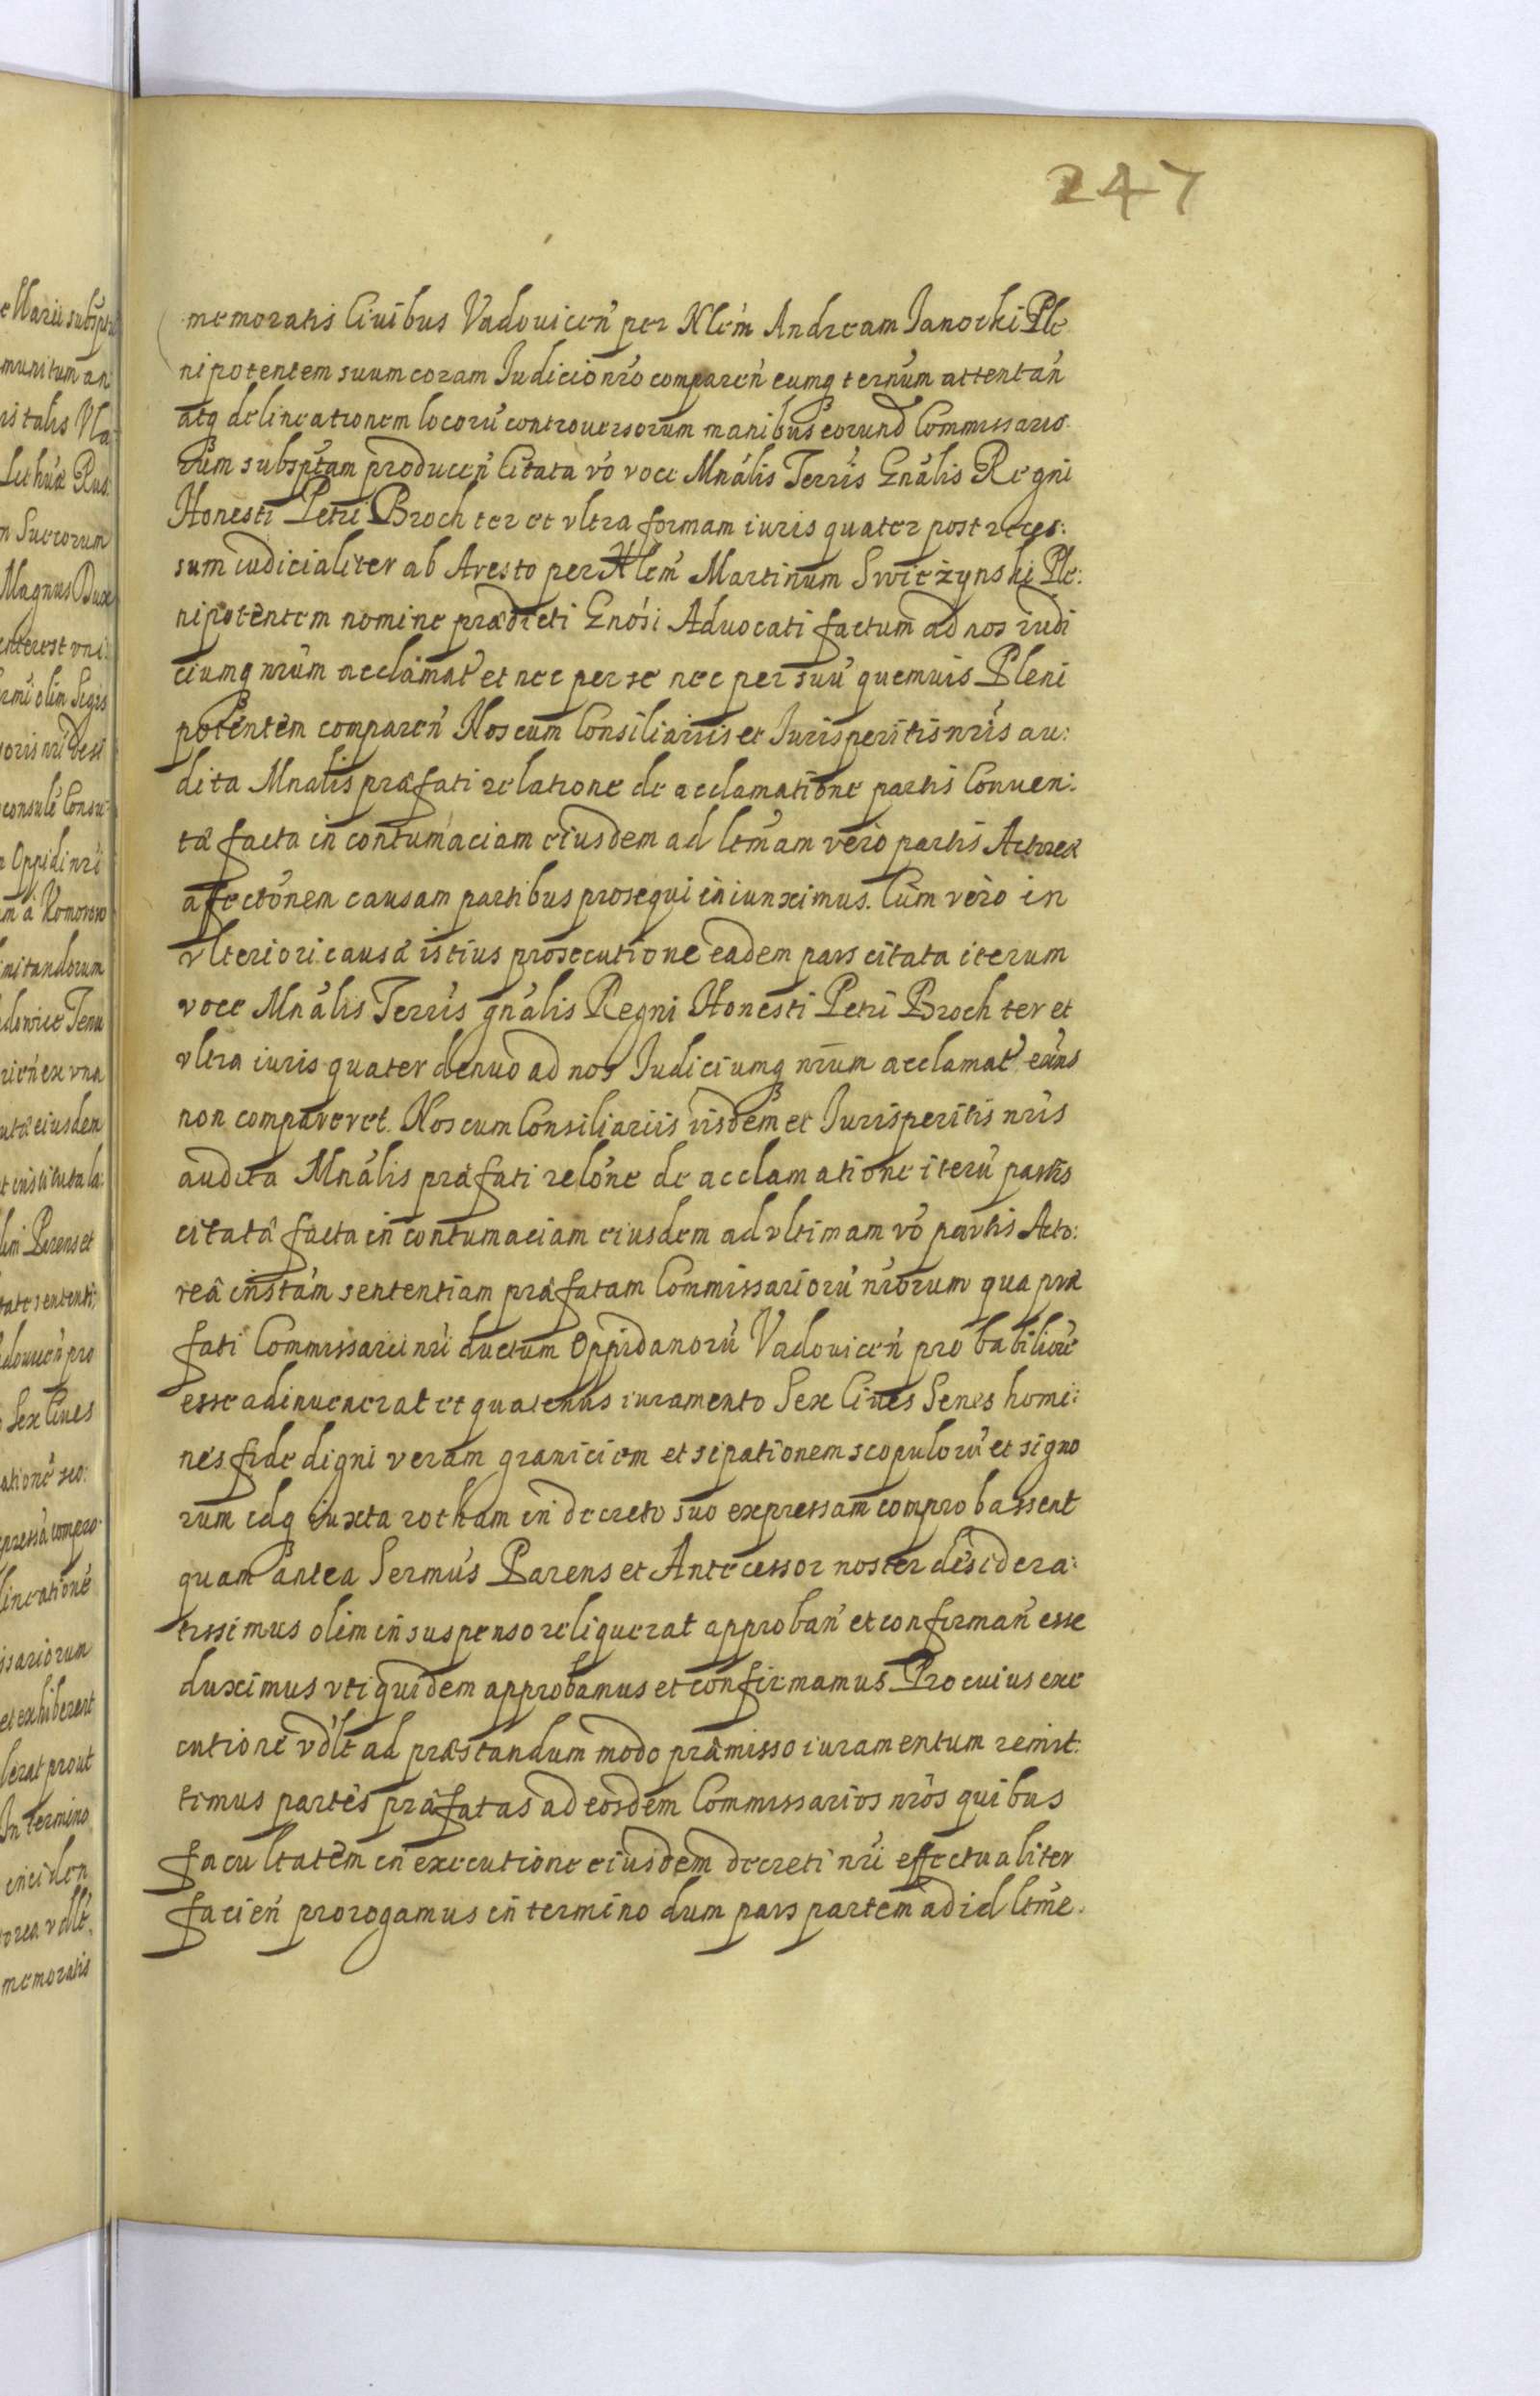 247
memoratis Ciuibus Vadouicen̄ per Nlem̄ Andream Janocki Ple
nipotentem suum coram Judicio nr̄o comparen̄ eumq̨ ternūm attentan̄
atq̨ delineationem locorū controuersorum manibus eorund Commissario
rum subsp̄tam producen̄ Citata vō voce Mnālis Terr̄is Gnālis Regni
Honesti Petri Broch ter et vltra formam iuris quater post reces:
sum iudicialiter ab Aresto per Nlem̄ Martinum Swiezynski Ple:
nipotentem nomine prædicti Gnōsi Aduocati factum ad nos iudi
ciumq̨ nr̄um acclamat̄ et nec per se nec per suū quemuis Pleni
potentem comparen̄ Nos cum Consiliariis et Jurisperitis nr̄is au:
dita Mnālis præfati relatione de acclamatione partis Conuen:
tæ facta in contumaciam eiusdem ad ltm̄am vero partis Actoreæ
affectōnem causam partibus prosequi iniunximus. Cùm verò in
vlteriori causæ istius prosecutione eadem pars citata iterum
voce Mnālis Terr̄is gnālis Regni Honesti Petri Broch ter et
vltra iuris quater denuo ad nos Judiciumq̨ nr̄um acclamat̄
non compareret. Nos cum Consiliariis iisdem et Jurisperitis nr̄is
audita Mnālis præfati relōne de acclamatione iterū partis
citatæ facta in contumaciam eiusdem ad vltimam vō partis Acto:
reæ instām sententiam præfatam Commissariorū nr̄orum qua præ
fati Commissarii nr̄i ductum Oppidanorū Vadouicen̄ probabiliorē
esse adinuenerat et quatenus iuramento Sex Ciues Senes homi:
nes fide digni veram graniciem et sipationem scopulorū et signo
rum idq̨ iuxta rotham in decreto suo expressam comprobassent
quam antea Serm̄us Parens et Antecessor noster desidera:
tissimus olim in suspenso reliquerat approban̄ et confirman̄ esse
duximus vti quidem approbamus et confirmamus Pro cuius exe
cutione vdlt ad præstandum modo præmisso iuramentum remit:
timus partes præfatas ad eosdem Commissarios nr̄os quibus
facultatem in executione eiusdem decreti nr̄i effectualiter
facien̄ prorogamus in termino dum pars partem ad id ltm̄e.